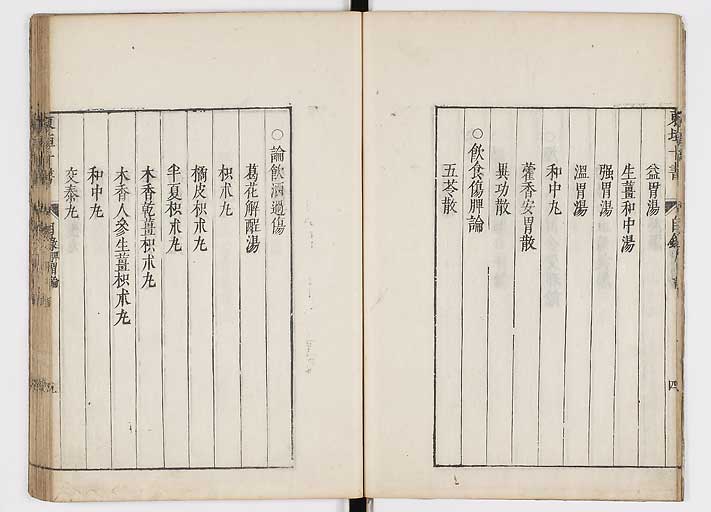 益胃湯
生薑和中湯
强胃湯
溫胃湯
和中丸
藿香安胃散
異功散
○飲食傷脾論
五苓散
四
○論飲酒過傷
葛花解酲湯
枳朮丸
橘皮枳朮丸
半夏枳朮丸
木香乾薑枳朮丸
木香人參生薑枳朮丸
和中丸
交泰丸
東垣十書
目錄脾胃論